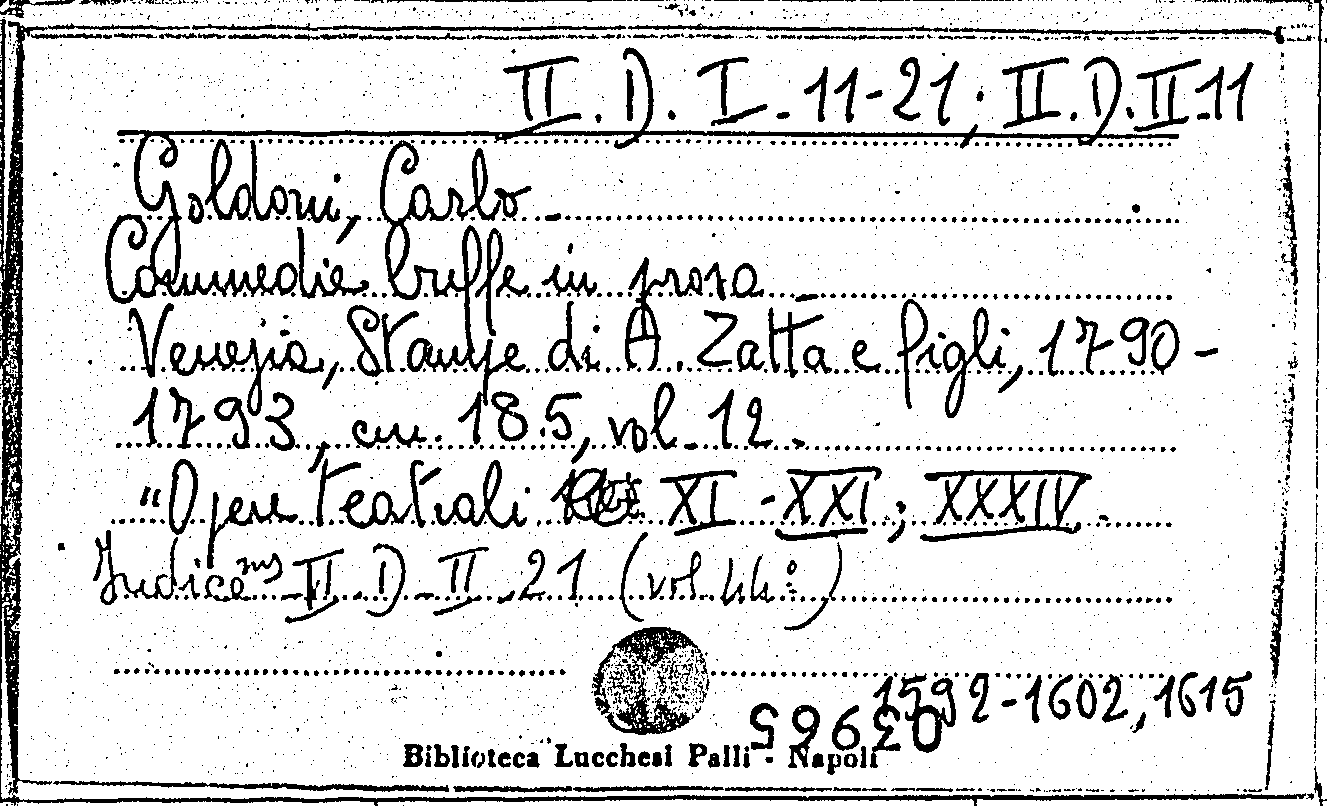 II. D. I. 11-21; II. D. II. 11
Goldoni, Carlo
Commedie buffe in prosa
Venezia, Stampe di A. Zatta e figli, 1790-
1793, cm. 18.5, vol. 12.
"Opere teatrali XI - XXI; XXXIV.
Indice ms II. D. II. 21 (vol. 44°)
1592-1602, 1615
Biblioteca Lucchesi Palli - Napoli